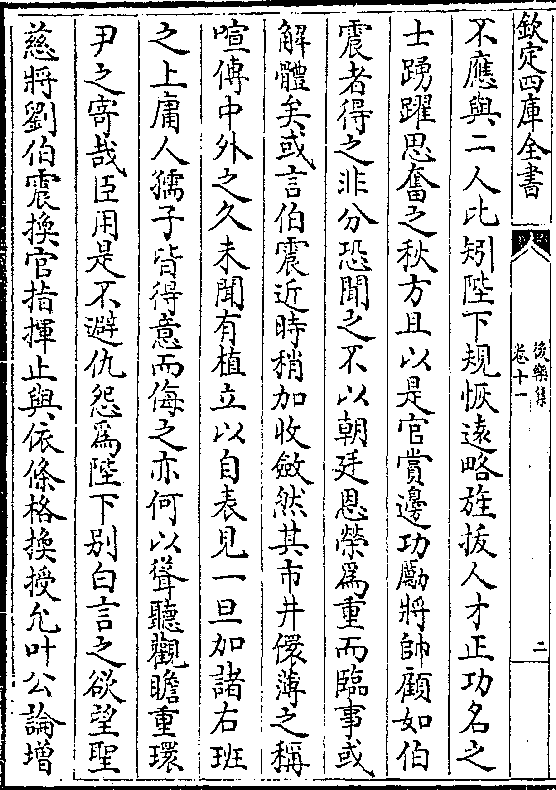 欽定四庫全書
後樂集
卷十一
二
不應與二人比矧陛下規恢遠略旌拔人才正功名之
士踴躍思奮之秋方且以是官賞邊功勵將帥顧如伯
震者得之非分恐聞之不以朝廷恩榮爲重而臨事或
解體矣或言伯震近時稍加收斂然其市井儇薄之稱
喧傳中外之久未聞有植立以自表見一旦加諸右班
之上庸人孺子皆得意而侮之亦何以聳聽觀瞻重環
尹之寄哉臣用是不避仇怨爲陛下别白言之欲望聖
慈將劉伯震換官指揮止與依條格換授允叶公論增